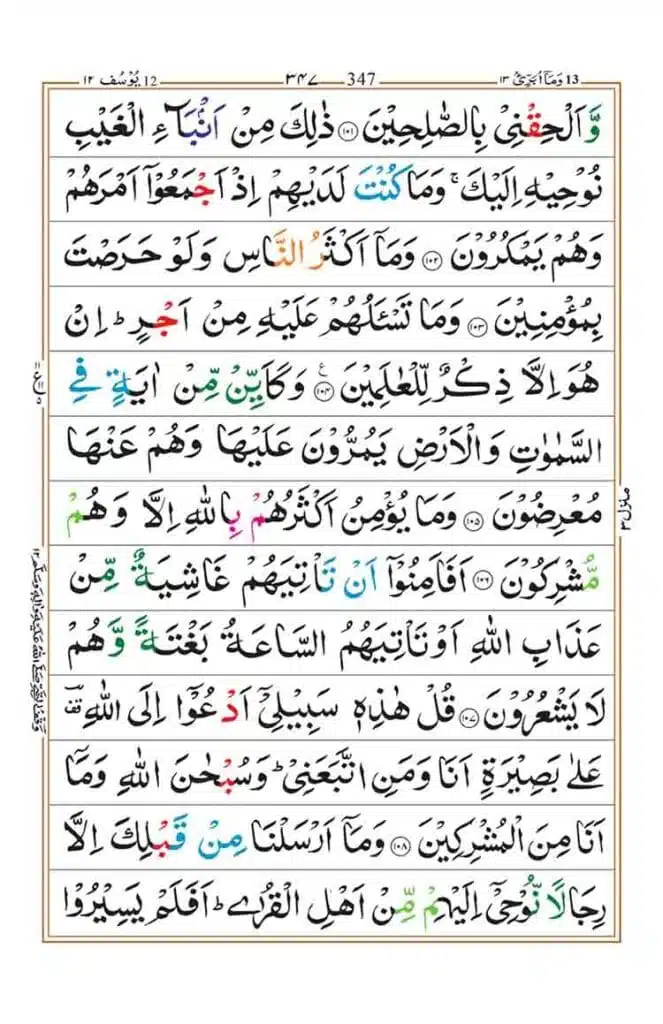 وَمَآ اُبَرِّئُ ١٣ 13 347 ٣٤٧ يُوْسُف ١٢ 12
وَّ اَلْحِقْنِىْ بِالصّٰلِحِيْنَ ۝١٠١ ذٰلِكَ مِنْ اَنْۢبَآءِ الْغَيْبِ
نُوْحِيْهِ اِلَيْكَ ۚ وَمَا كُنْتَ لَدَيْهِمْ اِذْ اَجْمَعُوْۤا اَمْرَهُمْ
وَهُمْ يَمْكُرُوْنَ ۝١٠٢ وَمَاۤ اَكْثَرُ النَّاسِ وَلَوْ حَرَصْتَ
بِمُؤْمِنِيْنَ ۝١٠٣ وَمَا تَسْـَٔلُهُمْ عَلَيْهِ مِنْ اَجْرٍ ؕ اِنْ
هُوَ اِلَّا ذِكْرٌ لِّلْعٰلَمِيْنَ ۝١٠٤ۧ وَكَاَيِّنْ مِّنْ اٰيَةٍ فِى
السَّمٰوٰتِ وَالْاَرْضِ يَمُرُّوْنَ عَلَيْهَا وَهُمْ عَنْهَا
مُعْرِضُوْنَ ۝١٠٥ وَمَا يُؤْمِنُ اَكْثَرُهُمْ بِاللّٰهِ اِلَّا وَهُمْ
مُّشْرِكُوْنَ ۝١٠٦ اَفَاَمِنُوْۤا اَنْ تَاْتِيَهُمْ غَاشِيَةٌ مِّنْ
عَذَابِ اللّٰهِ اَوْ تَاْتِيَهُمُ السَّاعَةُ بَغْتَةً وَّهُمْ
لَا يَشْعُرُوْنَ ۝١٠٧ قُلْ هٰذِهٖ سَبِيْلِىْۤ اَدْعُوْۤا اِلَى اللّٰهِ ࣞقف
عَلٰى بَصِيْرَةٍ اَنَا وَمَنِ اتَّبَعَنِىْ ؕ وَسُبْحٰنَ اللّٰهِ وَمَاۤ
اَنَا مِنَ الْمُشْرِكِيْنَ ۝١٠٨ وَمَاۤ اَرْسَلْنَا مِنْ قَبْلِكَ اِلَّا
رِجَالًا نُّوْحِىْۤ اِلَيْهِمْ مِّنْ اَهْلِ الْقُرٰى ؕ اَفَلَمْ يَسِيْرُوْا
منزل ٣